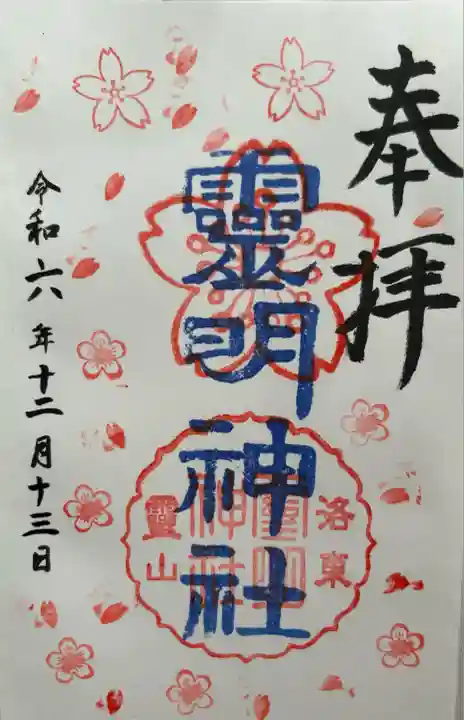 奉拝
靈明神社
洛東
靈山
令和六年十二月十三日